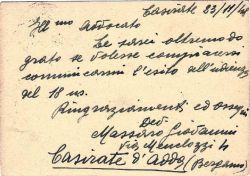 Casirate 23/11/40
Ill mo Avvocato
Le sarei oltremodo
grato se volesse compiacersi
comunicarmi l'esito dell'udienza
del 18 us.
Ringraziamenti ed ossequi
Dev
Massaro Giovanni
via
Casirate d'Adda (Bergamo)